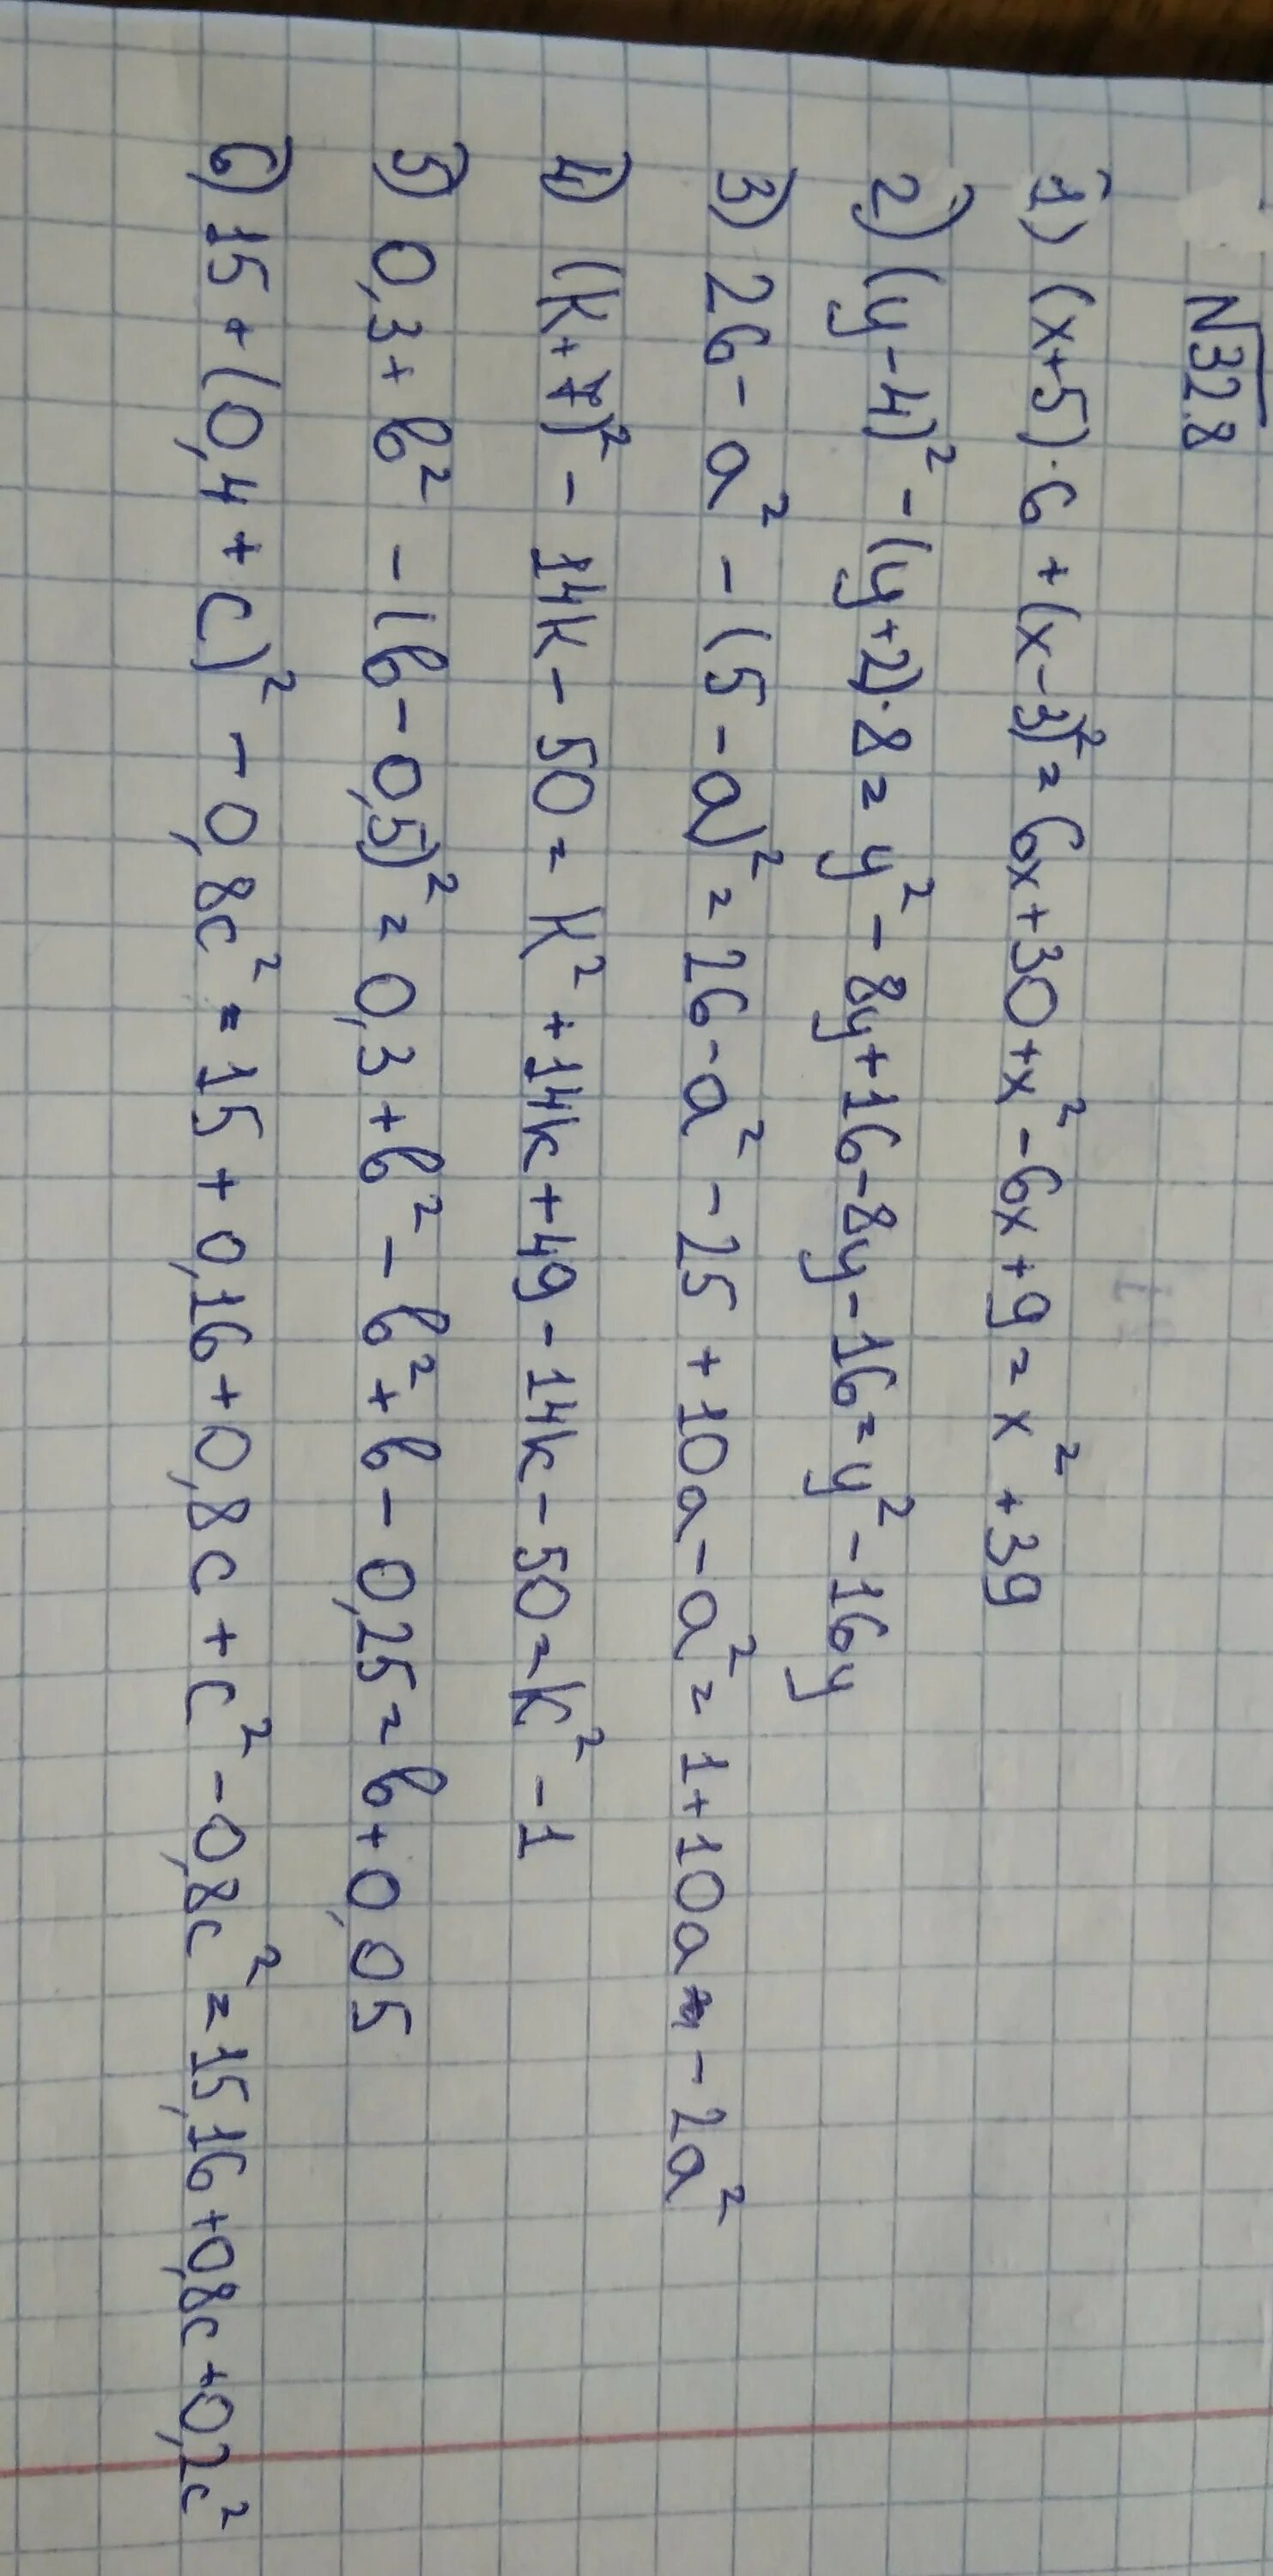 N328
1) (x+5)·6 + (x-3)² = 6x+30+x²-6x+9 = x²+39
2) (y-4)² - (y+2)·8 = y² - 8y+16-8y-16 = y²-16y
3) 26 - a² - (5-a)² = 26-a² - 25 + 10a - a² = 1+10a - 2a²
4) (k+7)² - 14k - 50 = k² + 14k + 49 - 14k - 50 = k² - 1
5) 0,3 + b² - (b-0,5)² = 0,3 + b² - b² + b - 0,25 = b + 0,05
6) 15 + (0,4 + c)² - 0,8c² = 15 + 0,16 + 0,8c + c² - 0,8c² = 15,16 + 0,8c + 0,2c²